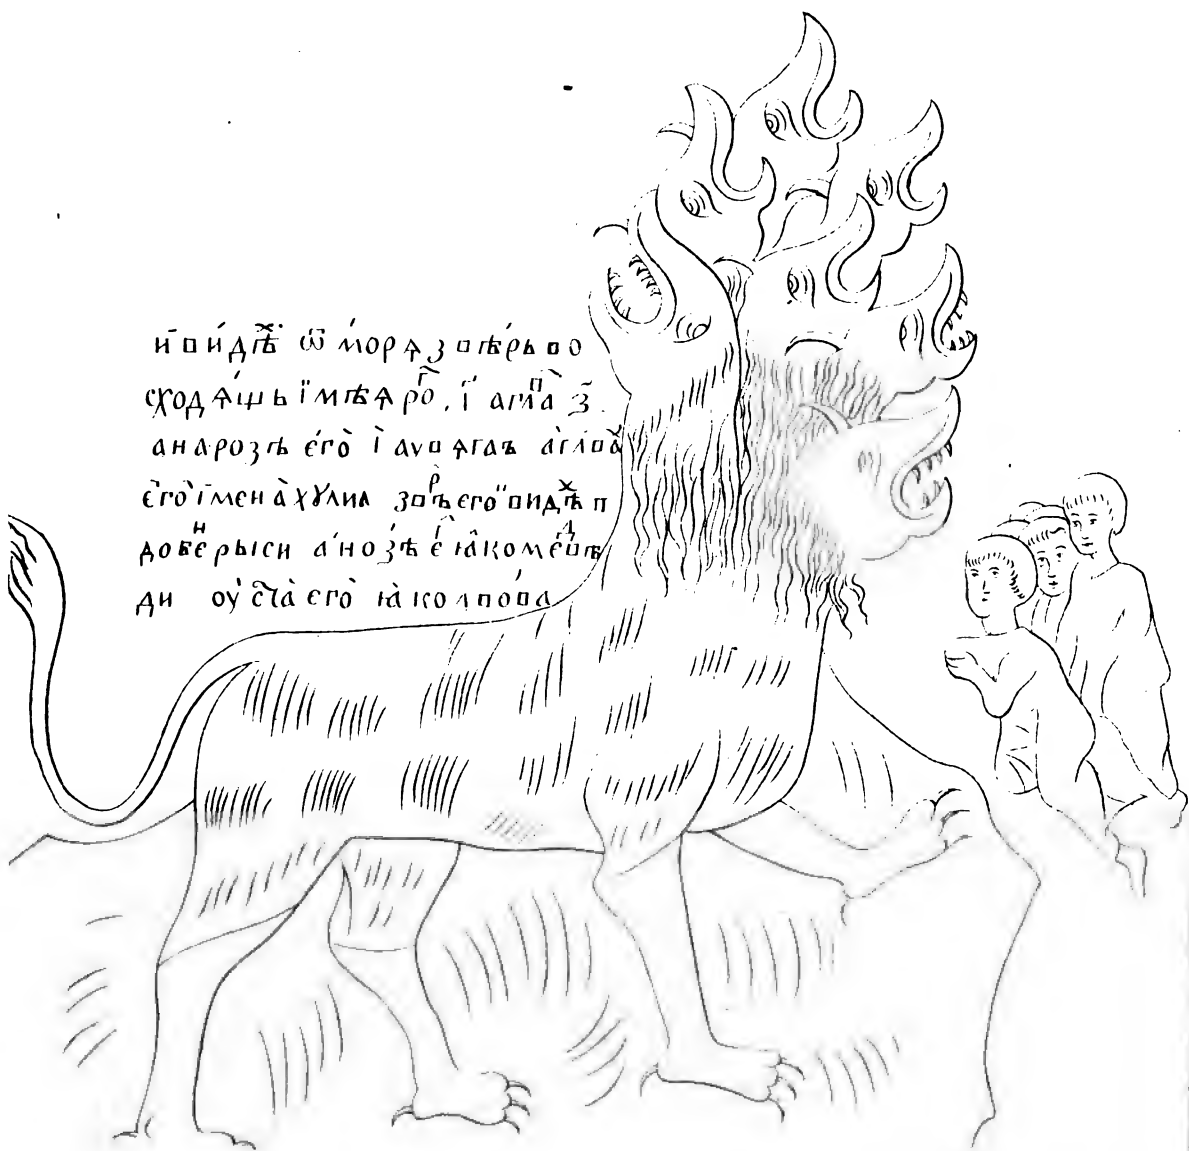 и҆ви́дѣⷯ ѿ мо́рѧ звѣ́рь во
сходѧ́щь їмѣѧ роⷢ҇ . ї҃ агл҃ваⷫ з҃
анарозѣ є́гѡ̀ ї авѵѧгаъ а҆глава
є҆го̀ їмена̀ хꙋлиа звⷬ҇ѣь его ви́дѣⷯ п
добеⷩ҇ рыси а҆но́зѣ еⷢ҇ ꙗ҆комеⷣвѣ
ди оу҆ста̀ его̀ ꙗ҆ колвова